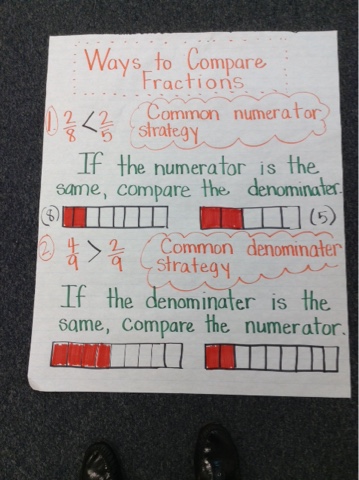 Ways to Compare
Fractions
1. 2/8 < 2/5 Common numerator
strategy
If the numerator is the
same, compare the denominater.
(8) (5)
2. 4/9 > 2/9 Common denominater
strategy
If the denominater is the
same, compare the numerator.